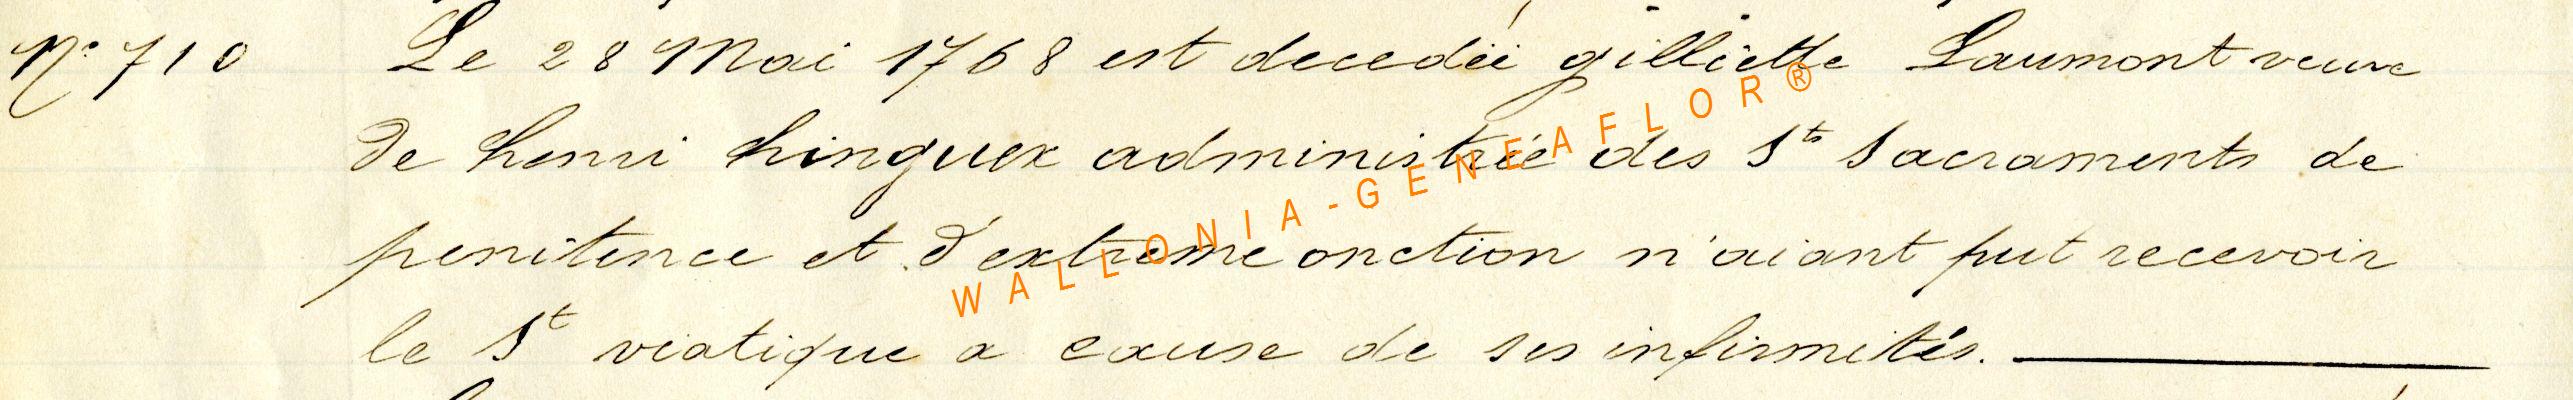 N° 710 Le 28 Mai 1768 est decedéé gilliette Laumont veuve
de henri hinguex administrée des Sts Sacraments de
penitence et d'extreme onction n'aiant put recevoir
le St viatique a cause de ses infirmités.
WALLONIA-GENEAFLOR®